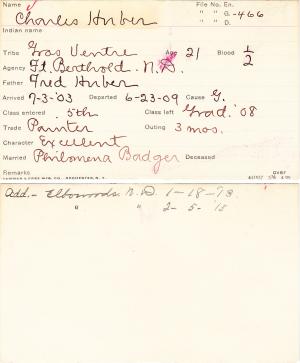 Name File No. En.
Charles Huber " " G. - 466
Indian name " " D.
Tribe Gros Ventre Age 21 Blood 1/2
Agency Ft. Berthold. N.D.
Father Fred Huber
Arrived 7-3-'03 Departed 6-23-09 Cause G.
Class entered 5th Class left Grad. '08
Trade Painter Outing 3 mos.
Character Excellent
Married Philomena Badger Deceased
Remarks over
Add. - Elbowoods. N.D. 1-18-'13.
" " 2-5-'15